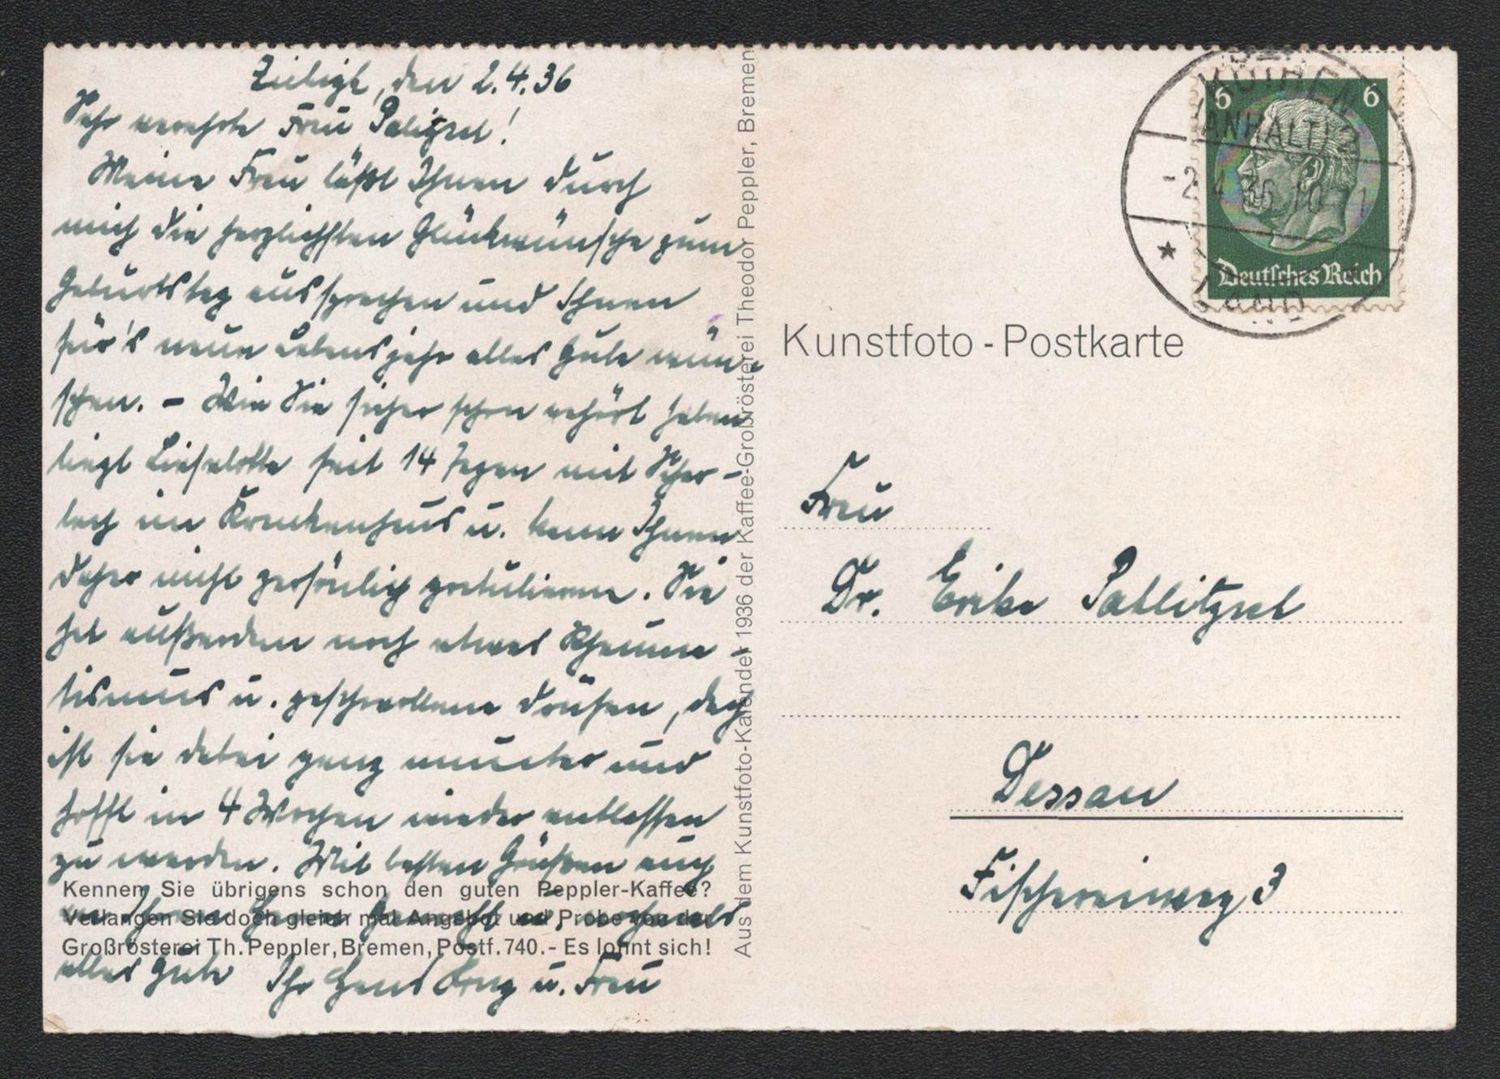 den 2.4.36
Sehr verehrte Frau
Meine Frau läßt Ihnen durch
mich die herzlichsten Glückwünsche zum
Geburtstag aussprechen und Ihnen
für's neue Lebensjahr alles Gute wün-
schen. – Wie Sie sicher schon gehört haben
liegt Lieselotte seit 14 Tagen mit Schar-
lach im Krankenhaus u. kann Ihnen
daher nicht persönlich gratulieren. Sie
hat außerdem noch etwas Rheuma-
tismus u. geschwollene Drüsen, doch
ist sie dabei ganz munter und
hofft in 4 Wochen wieder entlassen
zu werden. Mit besten Grüßen auch
an Ihren Herrn Gemahl u. nochmals
alles Gute Ihr Hans u. Frau
Kennen Sie übrigens schon den guten Peppler-Kaffee?
Verlangen Sie doch gleich mal Angebot und Probe von der
Großrösterei Th. Peppler, Bremen, Postf. 740.- Es lohnt sich!
Aus dem Kunstfoto-Kalender 1936 der Kaffee-Großrösterei Theodor Peppler, Bremen
6 6
Deutsches Reich
KÖTHEN
(ANHALT) 2
-2.4.36.10-11
LAND
Kunstfoto - Postkarte
Frau
Dr. Erika Pallitzsch
Dessau
Fischereiweg 3